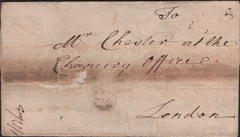 To
Mr. Chester at the
Chancery Office
London